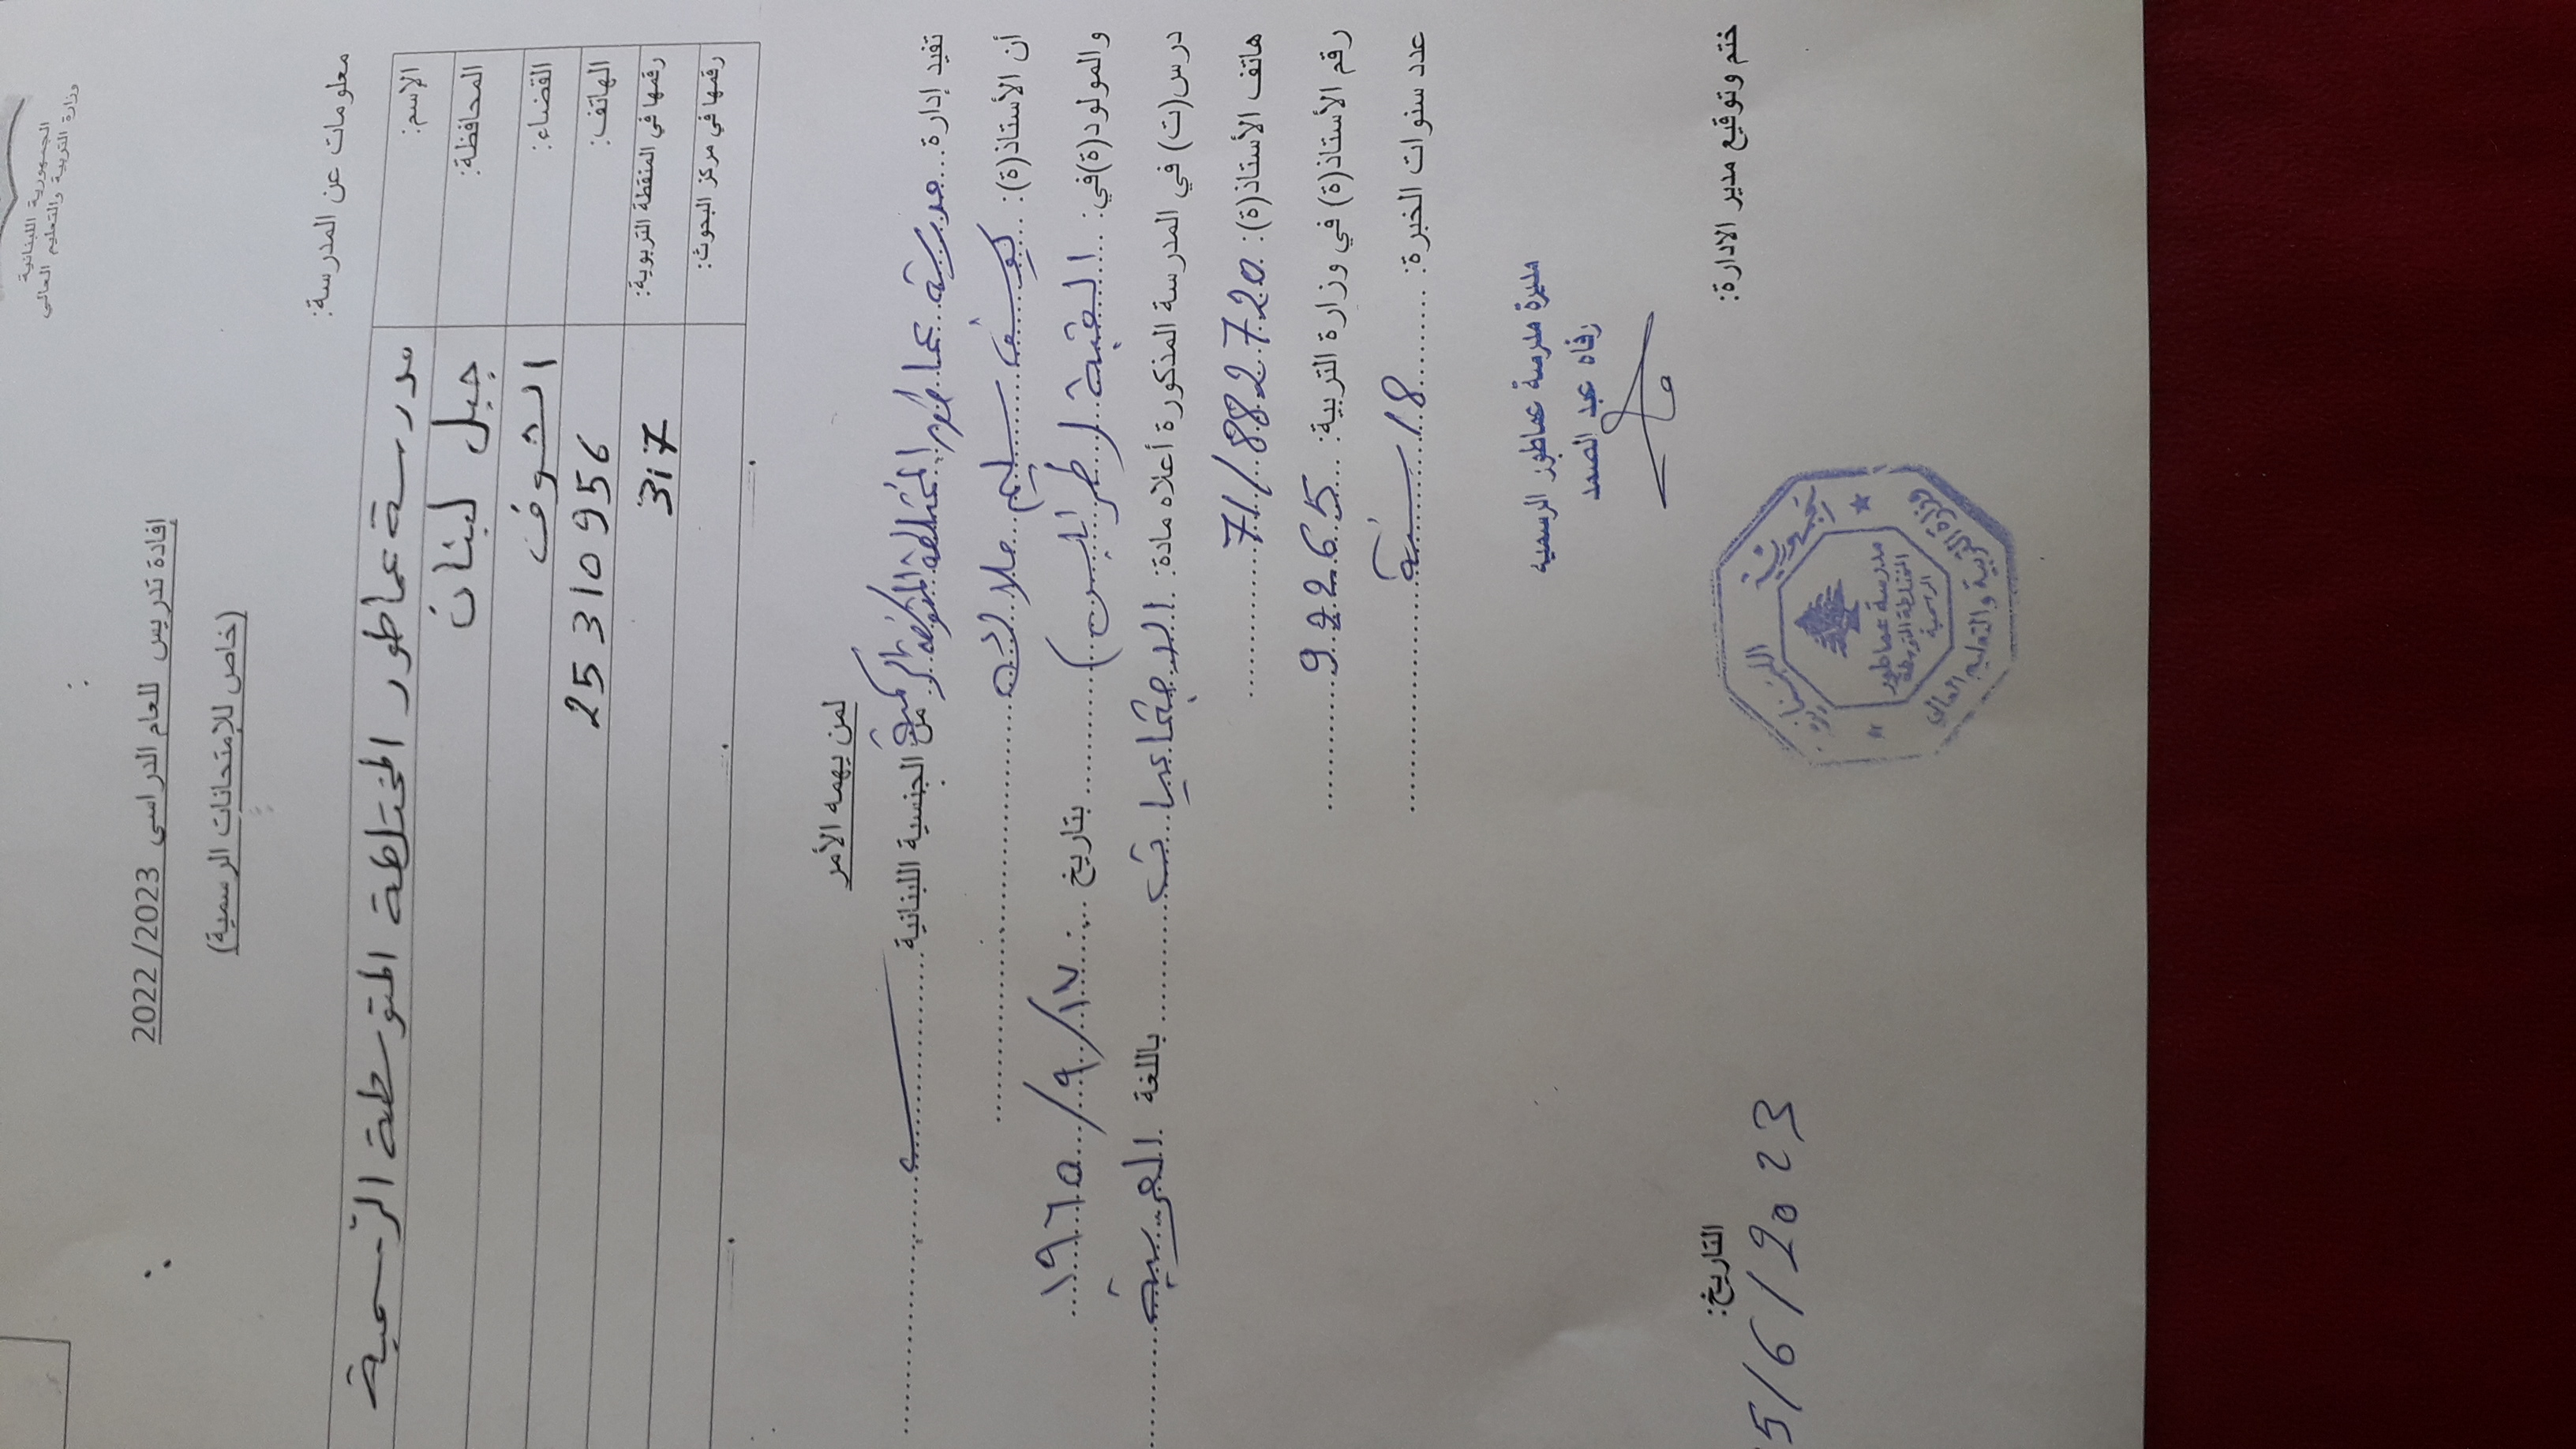 الجمهورية اللبنانية
وزارة التربية والتعليم العالي
إفادة تدريس للعام الدراسي 2022/2023
(خاص للإمتحانات الرسمية)
معلومات عن المدرسة:
الإسم: مدرسة عماطور المختلطة المتوسطة الرّسمية
المحافظة: جبل لبنان
القضاء: الشوف
الهاتف: 25310956
رقمها في المنقطة التربوية: 317
رقمها في مركز البحوث:
لمن يهمه الأمر
تفيد إدارة مدرسة عماطور المختلطة المتوسطة الرسمية من الجنسية اللبنانية
أن الأستاذ(ة): سليم
والمولود(ة)في: العقبة (طرابلس) بتاريخ ١٩٦٥/٩/١٧
درس(ت) في المدرسة المذكورة أعلاه مادة: الاجتماعيات باللغة العربية
هاتف الأستاذ(ة): 71/882720
رقم الأستاذ(ة) في وزارة التربية: 92265
عدد سنوات الخبرة: 18 سنة
مديرة مدرسة عماطور الرسمية
رفاه عبد الصمد
ختم وتوقيع مدير الادارة:
التاريخ:
5/6/2023
الجمهورية اللبنانية
مدرسة عماطور
المختلطة المتوسطة
الرسمية
وزارة التربية والتعليم العالي